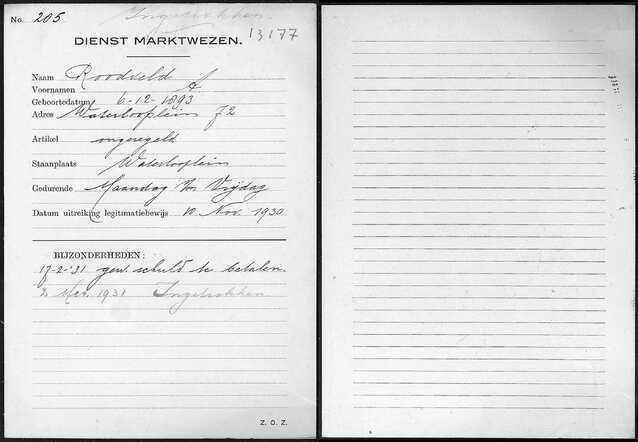 No. 205 Ingetrokken.
13177
DIENST MARKTWEZEN.
Naam Roodveld
Voornamen A
Geboortedatum 6-12-1893
Adres Waterlooplein 72
Artikel ongeregeld
Staanplaats Waterlooplein
Gedurende Maandag t/m Vrijdag
Datum uitreiking legitimatiebewijs 10 Nov. 1930
BIJZONDERHEDEN:
17-2-'31 gew. schuld te betalen.
2 Mrt. 1931 Ingetrokken
Z. O. Z.